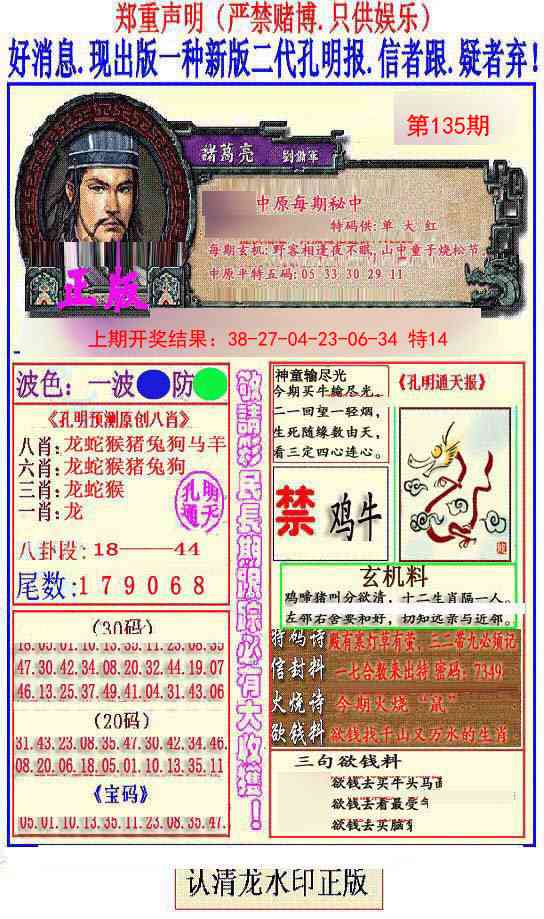 郑重声明（严禁赌博.只供娱乐）
好消息.现出版一种新版二代孔明报.信者跟.疑者弃！
第135期
諸葛亮
中原每期秘中
特码供:单 大 红
每期玄机:野客相逢夜不眠,山中童子烧松节.
中原半特五码:05 33 30 29 11
正版
上期开奖结果：38-27-04-23-06-34 特14
波色：一波 防
《孔明预测原创八肖》
八肖:龙蛇猴猪兔狗马羊
六肖:龙蛇猴猪兔狗
三肖:龙蛇猴
一肖:龙
孔明
通天
八卦段:18——44
尾数:179068
(30码)
18.05.01.10.13.35.11.23.08.35
47.30.42.34.08.20.32.44.19.07
46.13.25.37.49.41.04.31.43.06
(20码)
31.43.23.08.35.47.30.42.34.46.
08.20.06.18.05.01.10.13.35.11
《宝码》
05.01.10.13.35.11.23.08.35.47.
敬請彩民長期跟踪必有大收獲！
神童输尽光
今期买牛輸尽光。
二一回望一轻烟,
生死随缘数由天,
看三定四心连心。
《孔明通天报》
禁 鸡牛
玄机料
鸡啼猪叫分欲清，十二生肖隔一人。
左邻右舍要和好，切知远亲与近邻。
特码诗 殿有寒灯草有萤，三二带九必须记
信封料 一七合数乘出特 密码：7349
火烧诗 今期火烧“鼠”
欲钱料 欲钱找千山又万水的生肖
三句欲钱料
欲钱去买牛头马面
欲钱去看最受
欲钱去买脑
认清龙水印正版